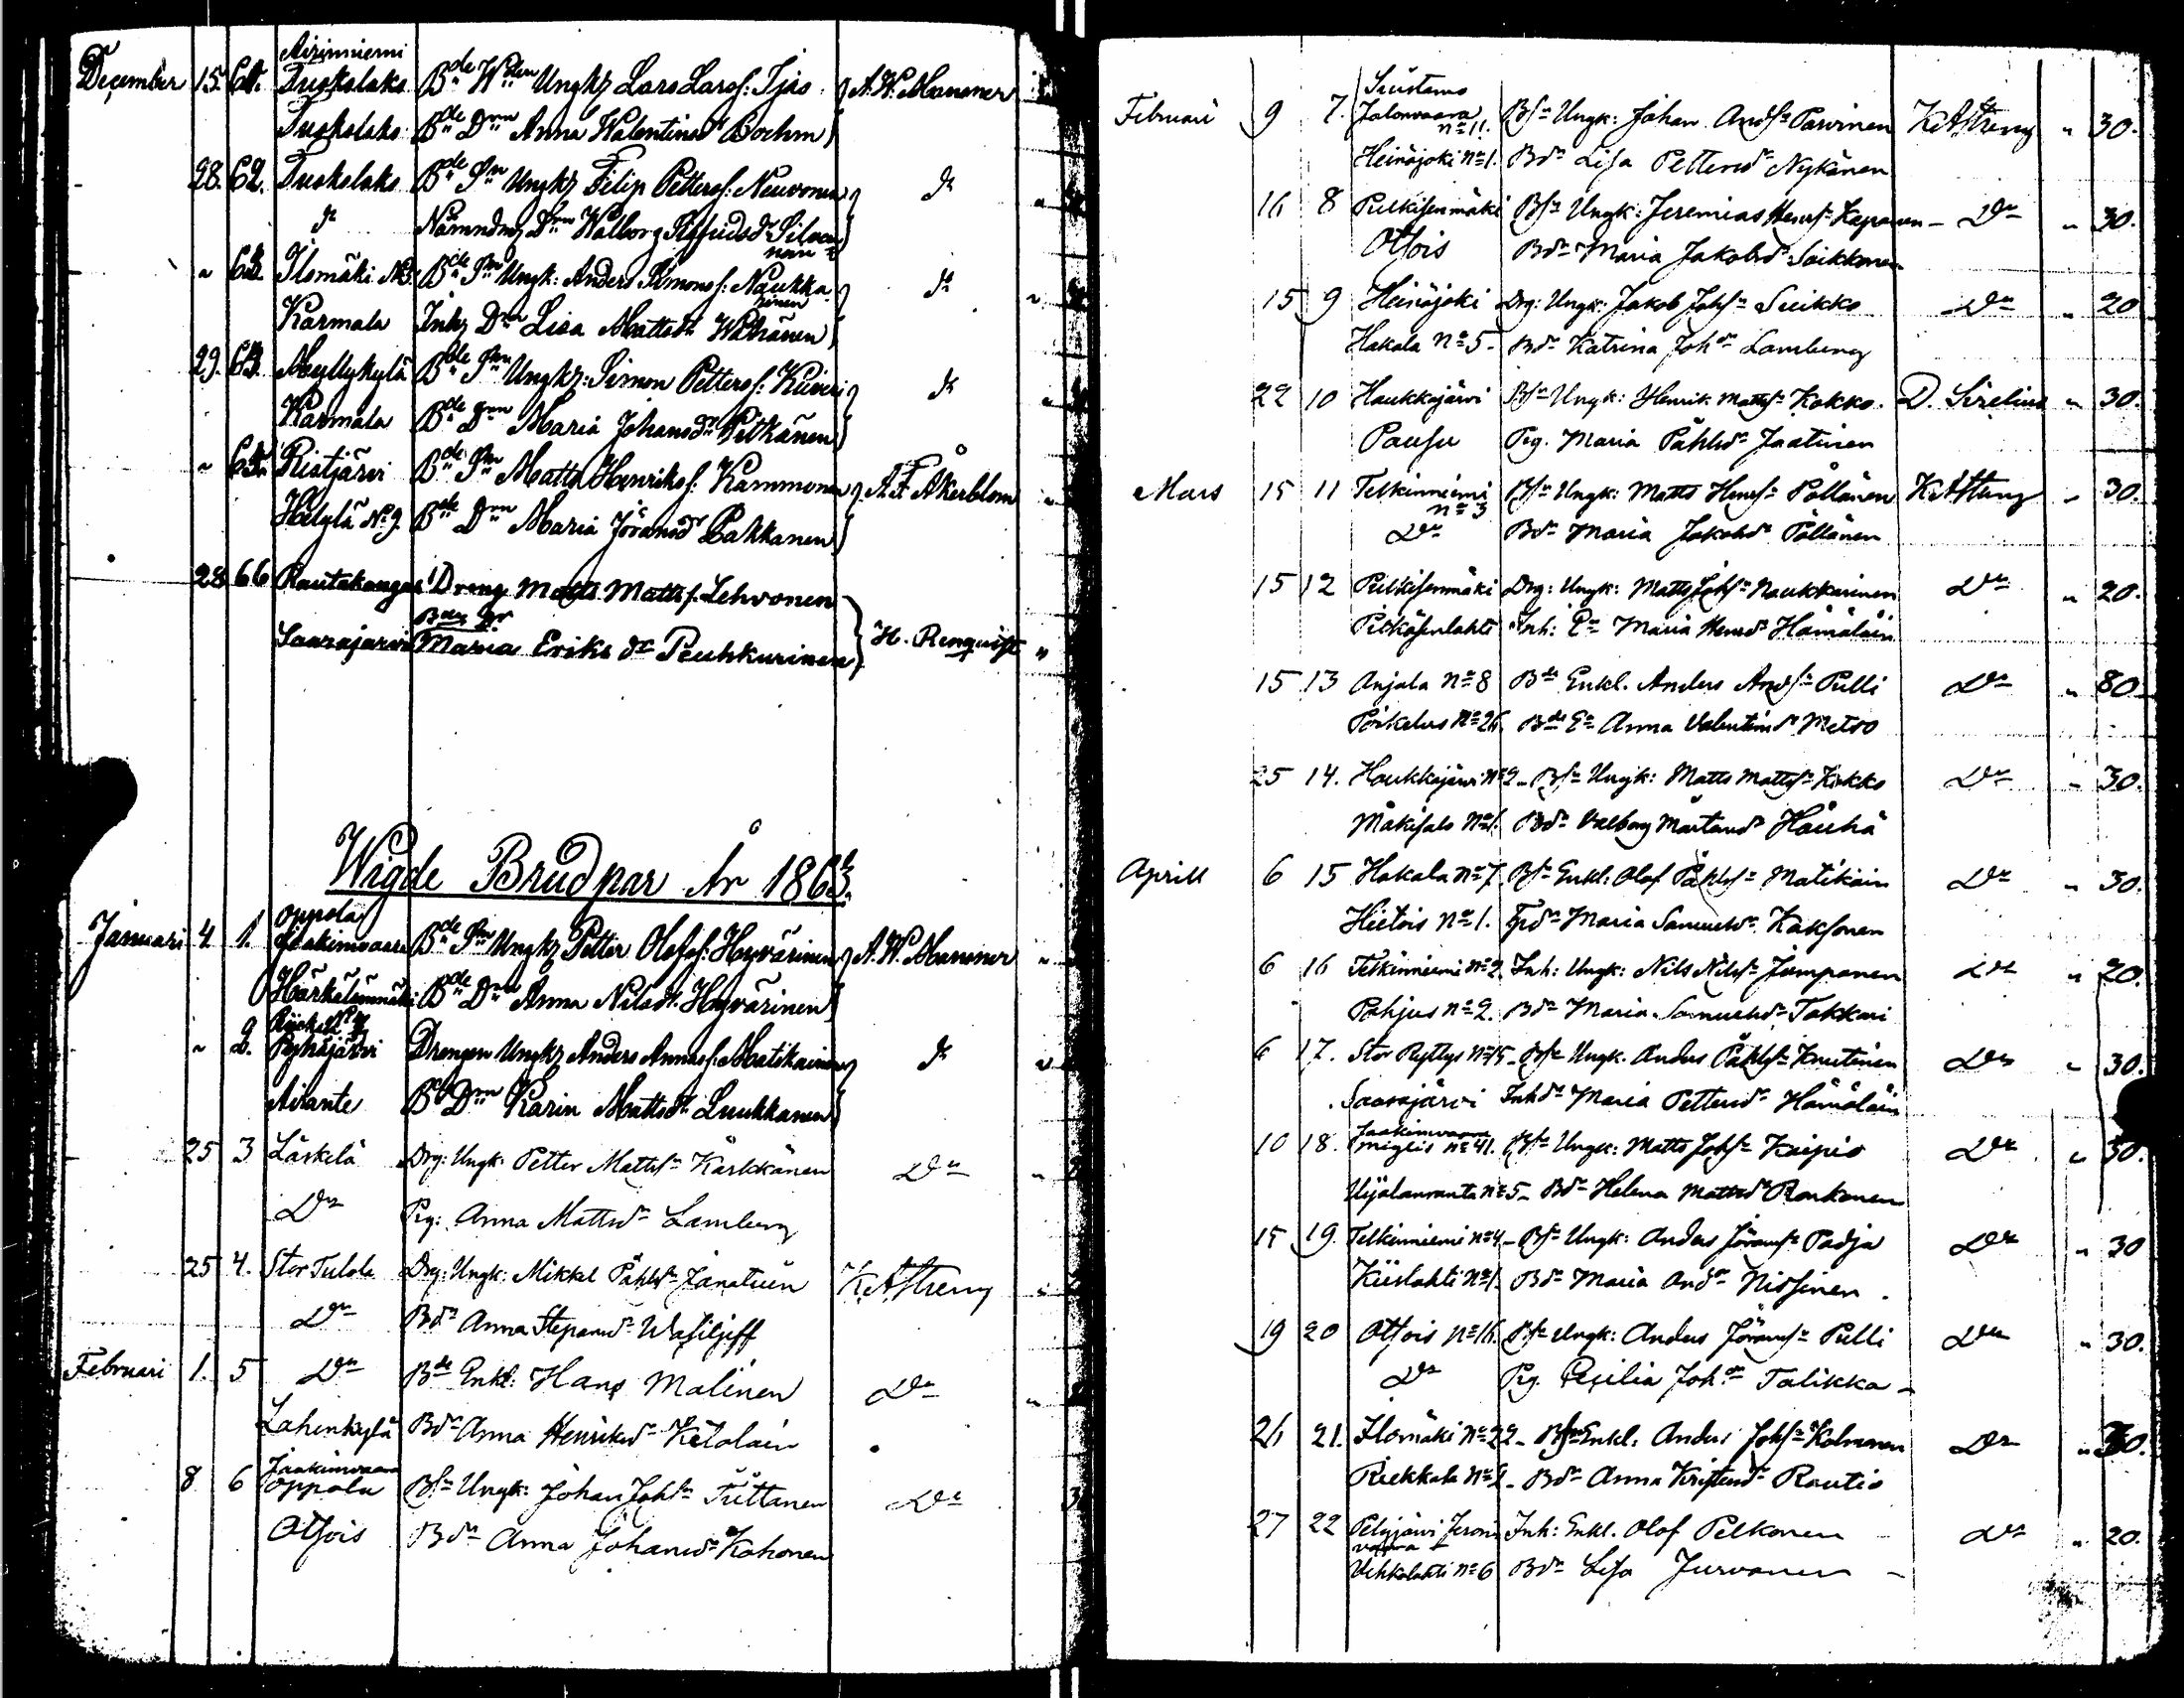 Airinniemi
December 15. 61. Tuokslaks Bde Wden Ungkz Lars Larsf: Ijäs A. W. Manner
Tuokslaks Bde Drn Anna Walentinsdr Boehm
28. 62. Tuokslaks Bde Sn Ungkz Filip Pettersf: Neuvonen dr
dr Nämndmz Drn Walborg Sigfridsdr Silvennoinen
" 63. Ilomäki No 3. Bde Sn Ungk: Anders Simonsf: Naukkarinen dr
Karmala Inhz Drn Lisa Mattsdr
29. 64. Myllykylä Bde Sn Ungkz: Simon Pettersf: Kiiveri dr
Karmala Bde Drn Maria Johansdr Pitkänen
" 65. Ristjärvi Bde Sn Matts Henriksf: Kammonen A. F. Åkerblom
Helylä No 9. Bde Drn Maria Jöransdr Pakkanen
28 66 Rautakangas Dreng Matts Mattsf. Lehvonen
Saarajärvi Maria Eriks dr Peuhkurinen H. Renquist "
Wigde Brudpar År 1863.
Oppola
Januari 4. 1. Jaakimvaara Bde Sn Ungkz Petter Olofsf: Hyvärinen A. W. Manner
Härkälinmäki Bde Drn Anna Nilsdr. Hyvärinen
" 2. Pyhäjärvi Drengen Ungkz Anders Annasf: Matikainen dr
Airante Bd Drn Karin Mattsdr. Luukkanen
25 3 Läskelä Drg: Ungk: Petter Mattsn Karkkänen Do
Do Pig: Anna Mattsdr Lamberg
25 4. Stor Tulola Drg: Ungk: Mikkel Påhlsn K. A Streng
Do Bdr Anna Stepansdr Wasiljeff
Februari 1. 5 Do Bde Enkl: Hans Malinen Do
Lahenkylä Bdr Anna Henriksdr Ketolain
Jaakimvaara
8 6 Oppola Bsn Ungk: Johan Johsn Tüttanen Do 3
Otsois Bdr Anna Johansdr Kohonen
Suistamo
Februari 9 7. Jalonvaara No 11. Bsn Ungk: Johan Andsn Parvinen K A Streng " 30.
Heinäjoki No 1. Bdr Lisa Pettersdr Nykänen
16 8 Pulkisenmäki Bsn Ungk: Jeremias Henrsn Kaponen Do " 30.
Otsois Bdr Maria Jakobsdr Saikkonen
15 9 Heinäjoki Drg: Ungk: Jakob Johsn Suikko Do " 20
Hakala No 5. Bdr Katrina Johdr Lamberg
22 10 Haukkajärvi Bsn Ungk: Henrik Mattsn Kokko. D. Sirelius " 30.
Pausu Pig. Maria Påhlsdr Jaatinen
Mars 15 11 Telkinniemi No 3 Bsn Ungk: Matts Henrsn Pöllänen K A Streng " 30.
Do Bdr Maria Jakobsdr Pöllänen
15 12 Pulkisenmäki Drg: Ungk: Matts Johsn Naukkarinen Do " 20.
Pitkäsenlahti Inh: En Maria Henrsdr Hämäläin
15 13 Anjala No 8 Bde Enkl. Anders Andsn Pulli Do " 80.
No 26. Bde En Anna Valentinsdr Metso
25 14. Haukkajärvi No 2 Bsn Ungk: Matts Mattsn Kokko Do " 30.
Mäkisalo No 1. Bdr Valborg Mårtensdr Häuhä
Aprill 6 15 Hakala No 7. Bsn Enkl: Olof Påhlsn Matikain Do " 30.
Hietois No 1. Bdr Maria Samuelsdr Kaksonen
6 16 Telkinniemi No 2. Inh: Ungk: Nils Nilssn Jumpanen Do " 20.
Pohjus No 2. Bdr Maria Samuelsdr Takkari
6 17. Stor Ryttys No 15 Bsn Ungk. Anders Påhlsn Knuutinen Do " 30.
Saarajärvi Inhdr Maria Pettersdr Hämäläin
Jaakimvaara
10 18. Miglis No 41. Bsn Ungk: Matts Johsn Kaipio Do " 30.
Uijalanranta No 5. Bdr Helena Mattsdr Raukonen
15 19. Telkinniemi No 4 Bsn Ungk: Anders Jöransn Padja Do " 30
Kiislahti No 1. Bdr Maria Anddr Nissinen.
19 20 Otsois No 16. Bsn Ungk: Anders Jöransn Pulli Do " 30.
Do Pig. Cecilia Johdr Talikka
26 21. Ilomäki No 22 Bsn Enkl: Anders Johsn Kolmonen Do " 30.
Riekkala No 2 Bdr Anna Kristersdr Rautio
27 22 Pelgjärvi Jeronvaara Inh: Enkl. Olof Pelkonen Do " 20.
Vehkalahti No 6 Bdr Lisa Jurvanen